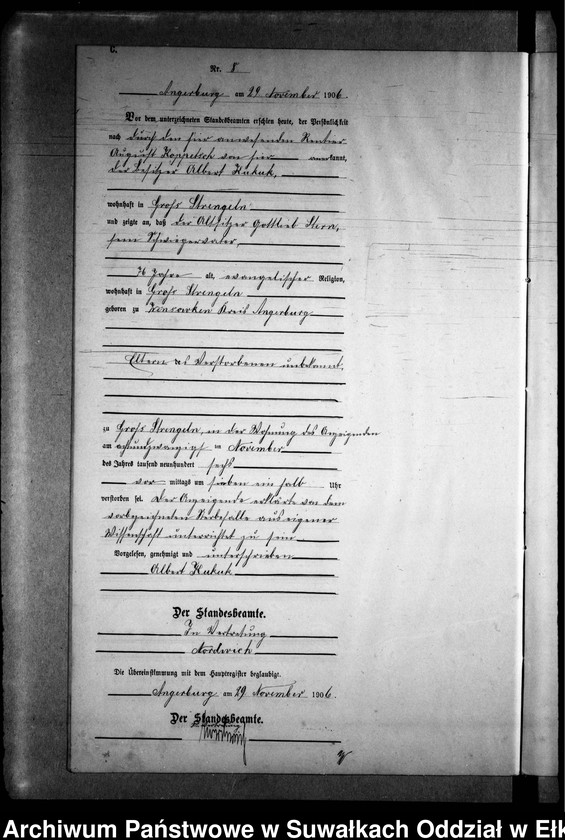 C.
Nr. 8
Angerburg am 29 November 1906.
Vor dem unterzeichneten Standesbeamten erschien heute, der Persönlichkeit
nach durch den hier anwesenden Rentier
August Koppetsch von hier anerkannt,
der Besitzer Albert Kukuk,
wohnhaft in Groß Strengeln
und zeigte an, daß der Altsitzer Gottlieb Stern,
sein Schwiegervater,
76 Jahre alt, evangelischer Religion,
wohnhaft in Groß Strengeln
geboren zu Kreis Angerburg
Eltern des Verstorbenen unbekannt,
zu Groß Strengeln, in der Wohnung des Anzeigenden
am achtundzwanzigst en November
des Jahres tausend neunhundert sechs
vor mittags um sieben ein halb Uhr
verstorben sei. Der Anzeigende erklärte von dem
vorbezeichneten Sterbefalle aus eigener
Wissenschaft unterrichtet zu sein
Vorgelesen, genehmigt und unterschrieben
Albert Kukuk
Der Standesbeamte.
In Vertretung
Die Übereinstimmung mit dem Hauptregister beglaubigt.
Angerburg am 29 November 1906.
Der Standesbeamte.
Archiwum Państwowe w Suwałkach Oddział w Ełk